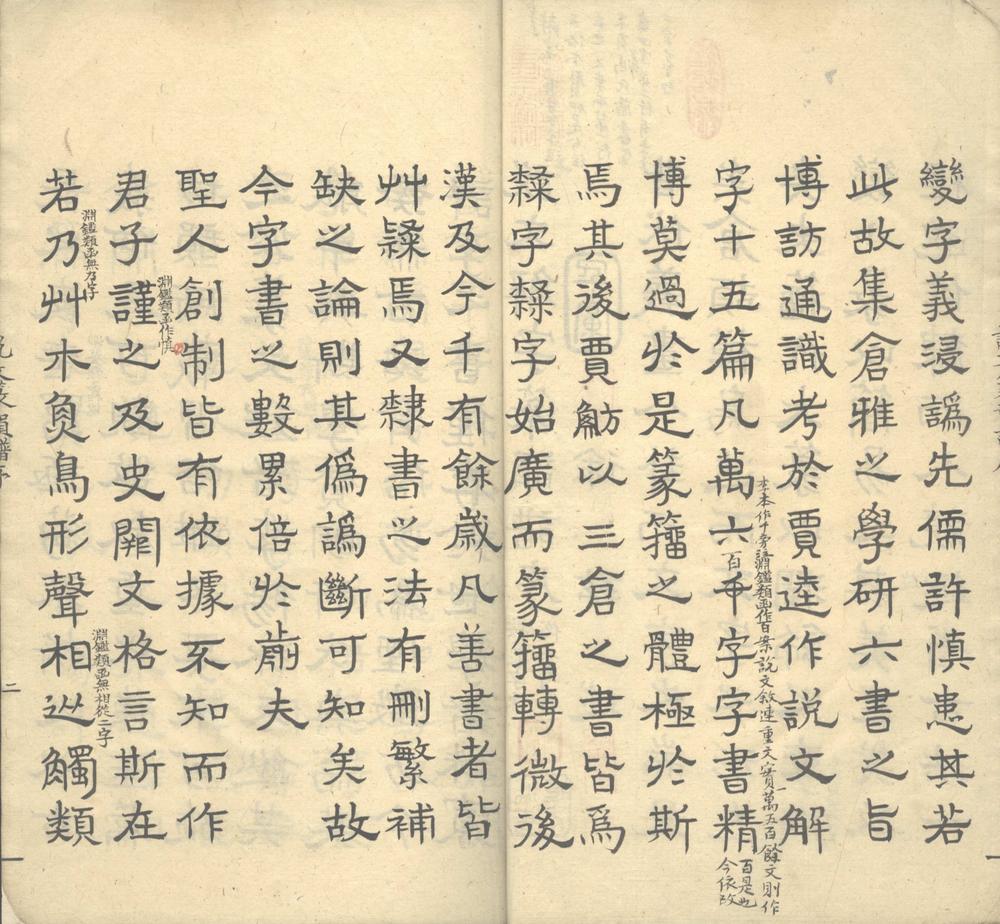 變字義浸譌先儒許慎患其若
此故集倉雅之學研六書之旨
博訪通識考於賈逵作說文解
字十五篇凡萬六百字字書精
李本作千旁淵鑑類函作百案說文敘連重文實一萬五百餘文則作
百是也
今依改
博莫過於是篆籀之體極於斯
焉其後賈魴以三倉之書皆為
隸字隸字始廣而篆籀轉微後
漢及今千有餘歲凡善書者皆
艸隸焉又隸書之法有刪繁補
缺之論則其偽譌斷可知矣故
今字書之數累倍於前夫
聖人創制皆有依據不知而作
君子謹之及史闕文格言斯在
淵鑑類函作慎
若乃艸木魚鳥形聲相從觸類
淵鑑類函無乃字
淵鑑類函無相從二字
二